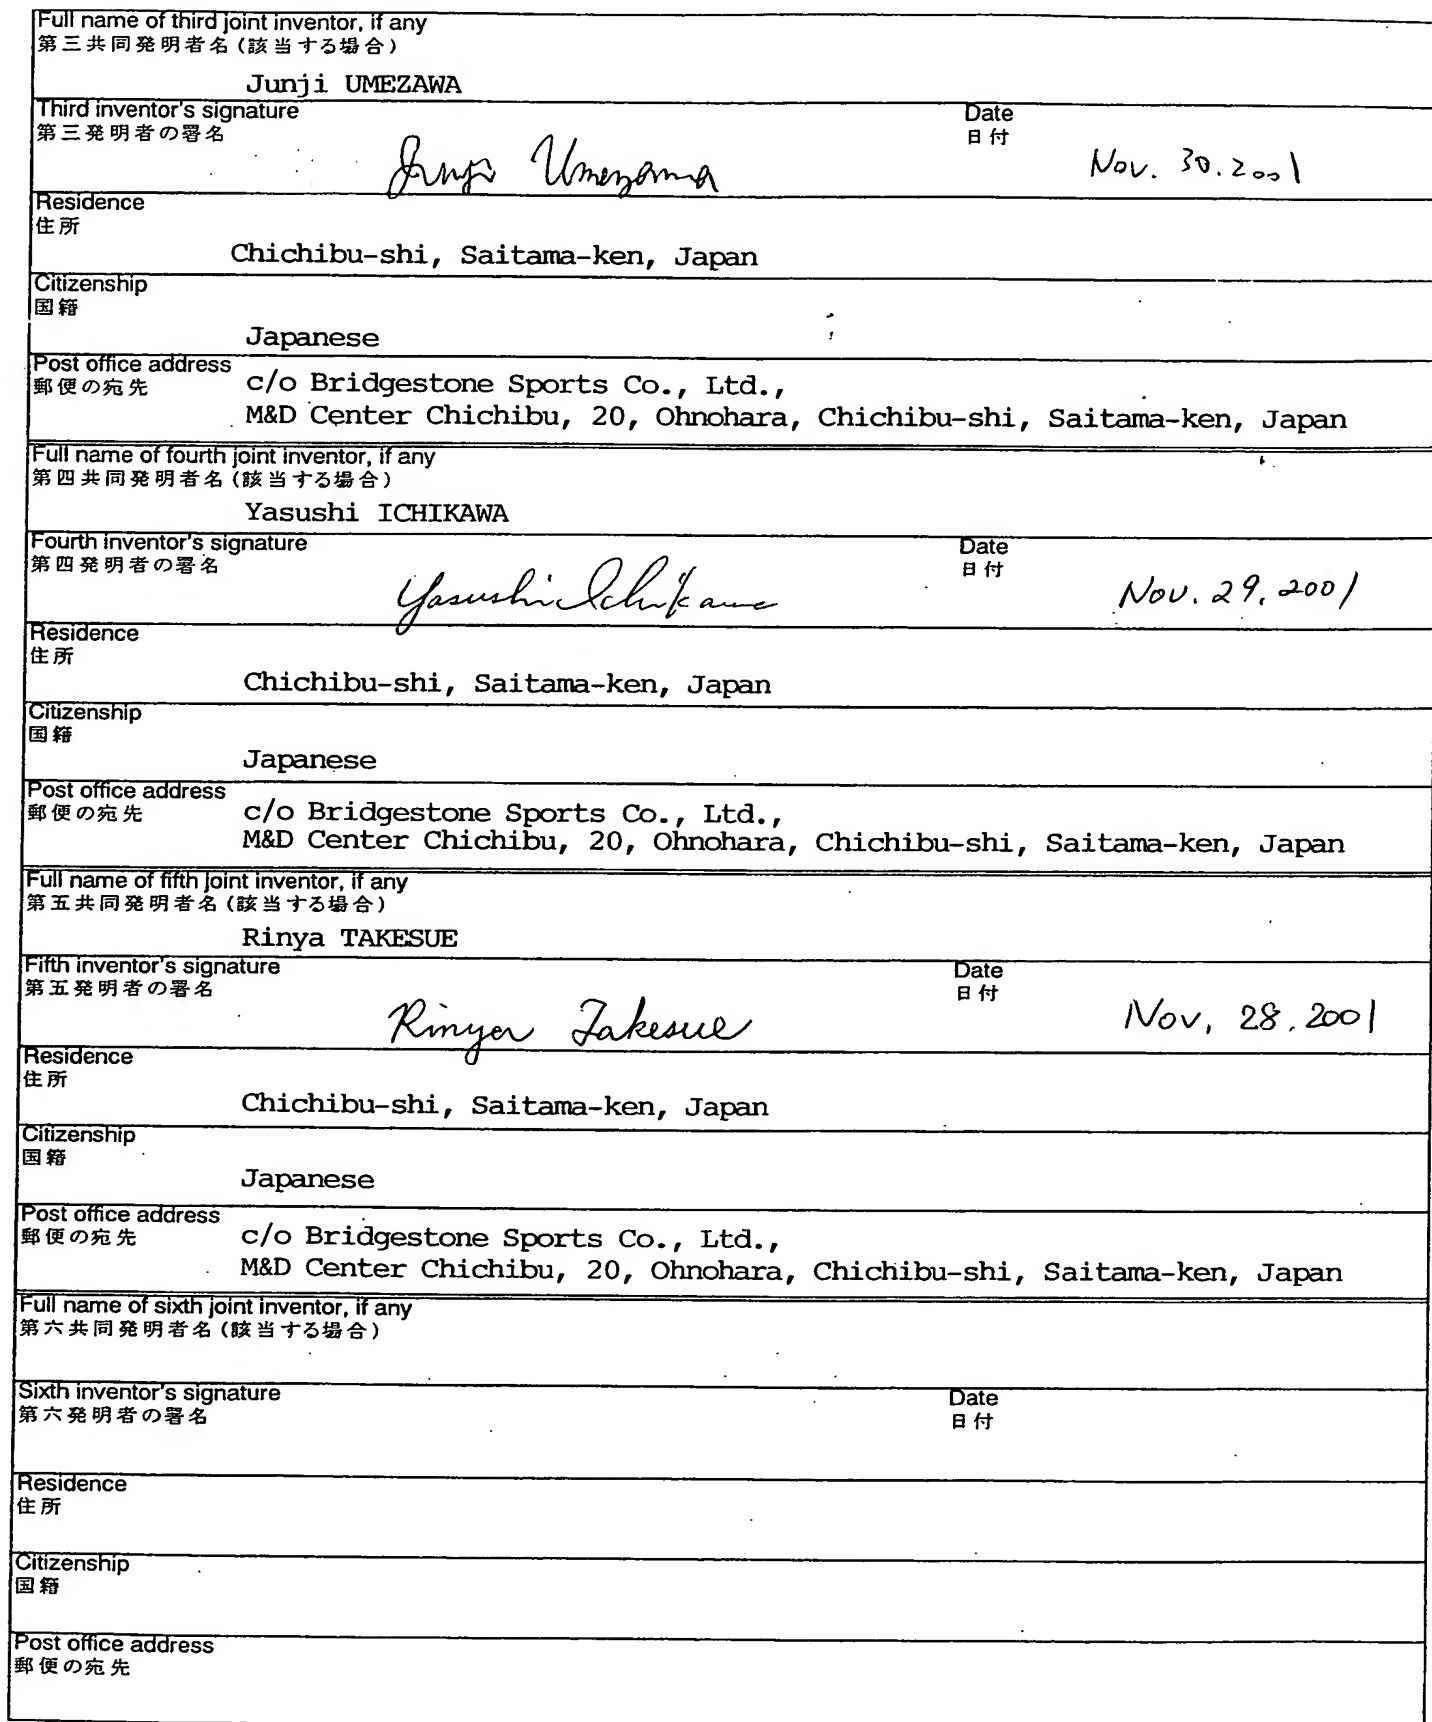 Full name of third joint inventor, if any
第三共同発明者名(該当する場合)
Junji UMEZAWA
Third inventor's signature
Date
第三発明者の署名
日付
Junji Umezawa
Nov. 30. 2001
Residence
住所
Chichibu-shi, Saitama-ken, Japan
Citizenship
国籍
Japanese
Post office address
郵便の宛先
c/o Bridgestone Sports Co., Ltd.,
M&D Center Chichibu, 20, Ohnohara, Chichibu-shi, Saitama-ken, Japan
Full name of fourth joint inventor, if any
第四共同発明者名(該当する場合)
Yasushi ICHIKAWA
Fourth inventor's signature
Date
第四発明者の署名
日付
Yasushi Ichikawa
Nov. 29, 2001
Residence
住所
Chichibu-shi, Saitama-ken, Japan
Citizenship
国籍
Japanese
Post office address
郵便の宛先
c/o Bridgestone Sports Co., Ltd.,
M&D Center Chichibu, 20, Ohnohara, Chichibu-shi, Saitama-ken, Japan
Full name of fifth joint inventor, if any
第五共同発明者名(該当する場合)
Rinya TAKESUE
Fifth inventor's signature
Date
第五発明者の署名
日付
Rinya Takesue
Nov, 28, 2001
Residence
住所
Chichibu-shi, Saitama-ken, Japan
Citizenship
国籍
Japanese
Post office address
郵便の宛先
c/o Bridgestone Sports Co., Ltd.,
M&D Center Chichibu, 20, Ohnohara, Chichibu-shi, Saitama-ken, Japan
Full name of sixth joint inventor, if any
第六共同発明者名(該当する場合)
Sixth inventor's signature
Date
第六発明者の署名
日付
Residence
住所
Citizenship
国籍
Post office address
郵便の宛先